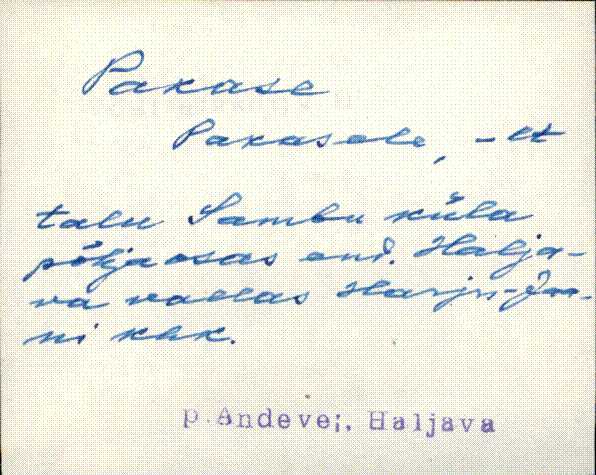 Pakase
Pakasele, -lt
talu Sambu küla
põhjaosas end. Halja-
va vallas Harju-Jaa-
ni khk.
p. Andevei, Haljava